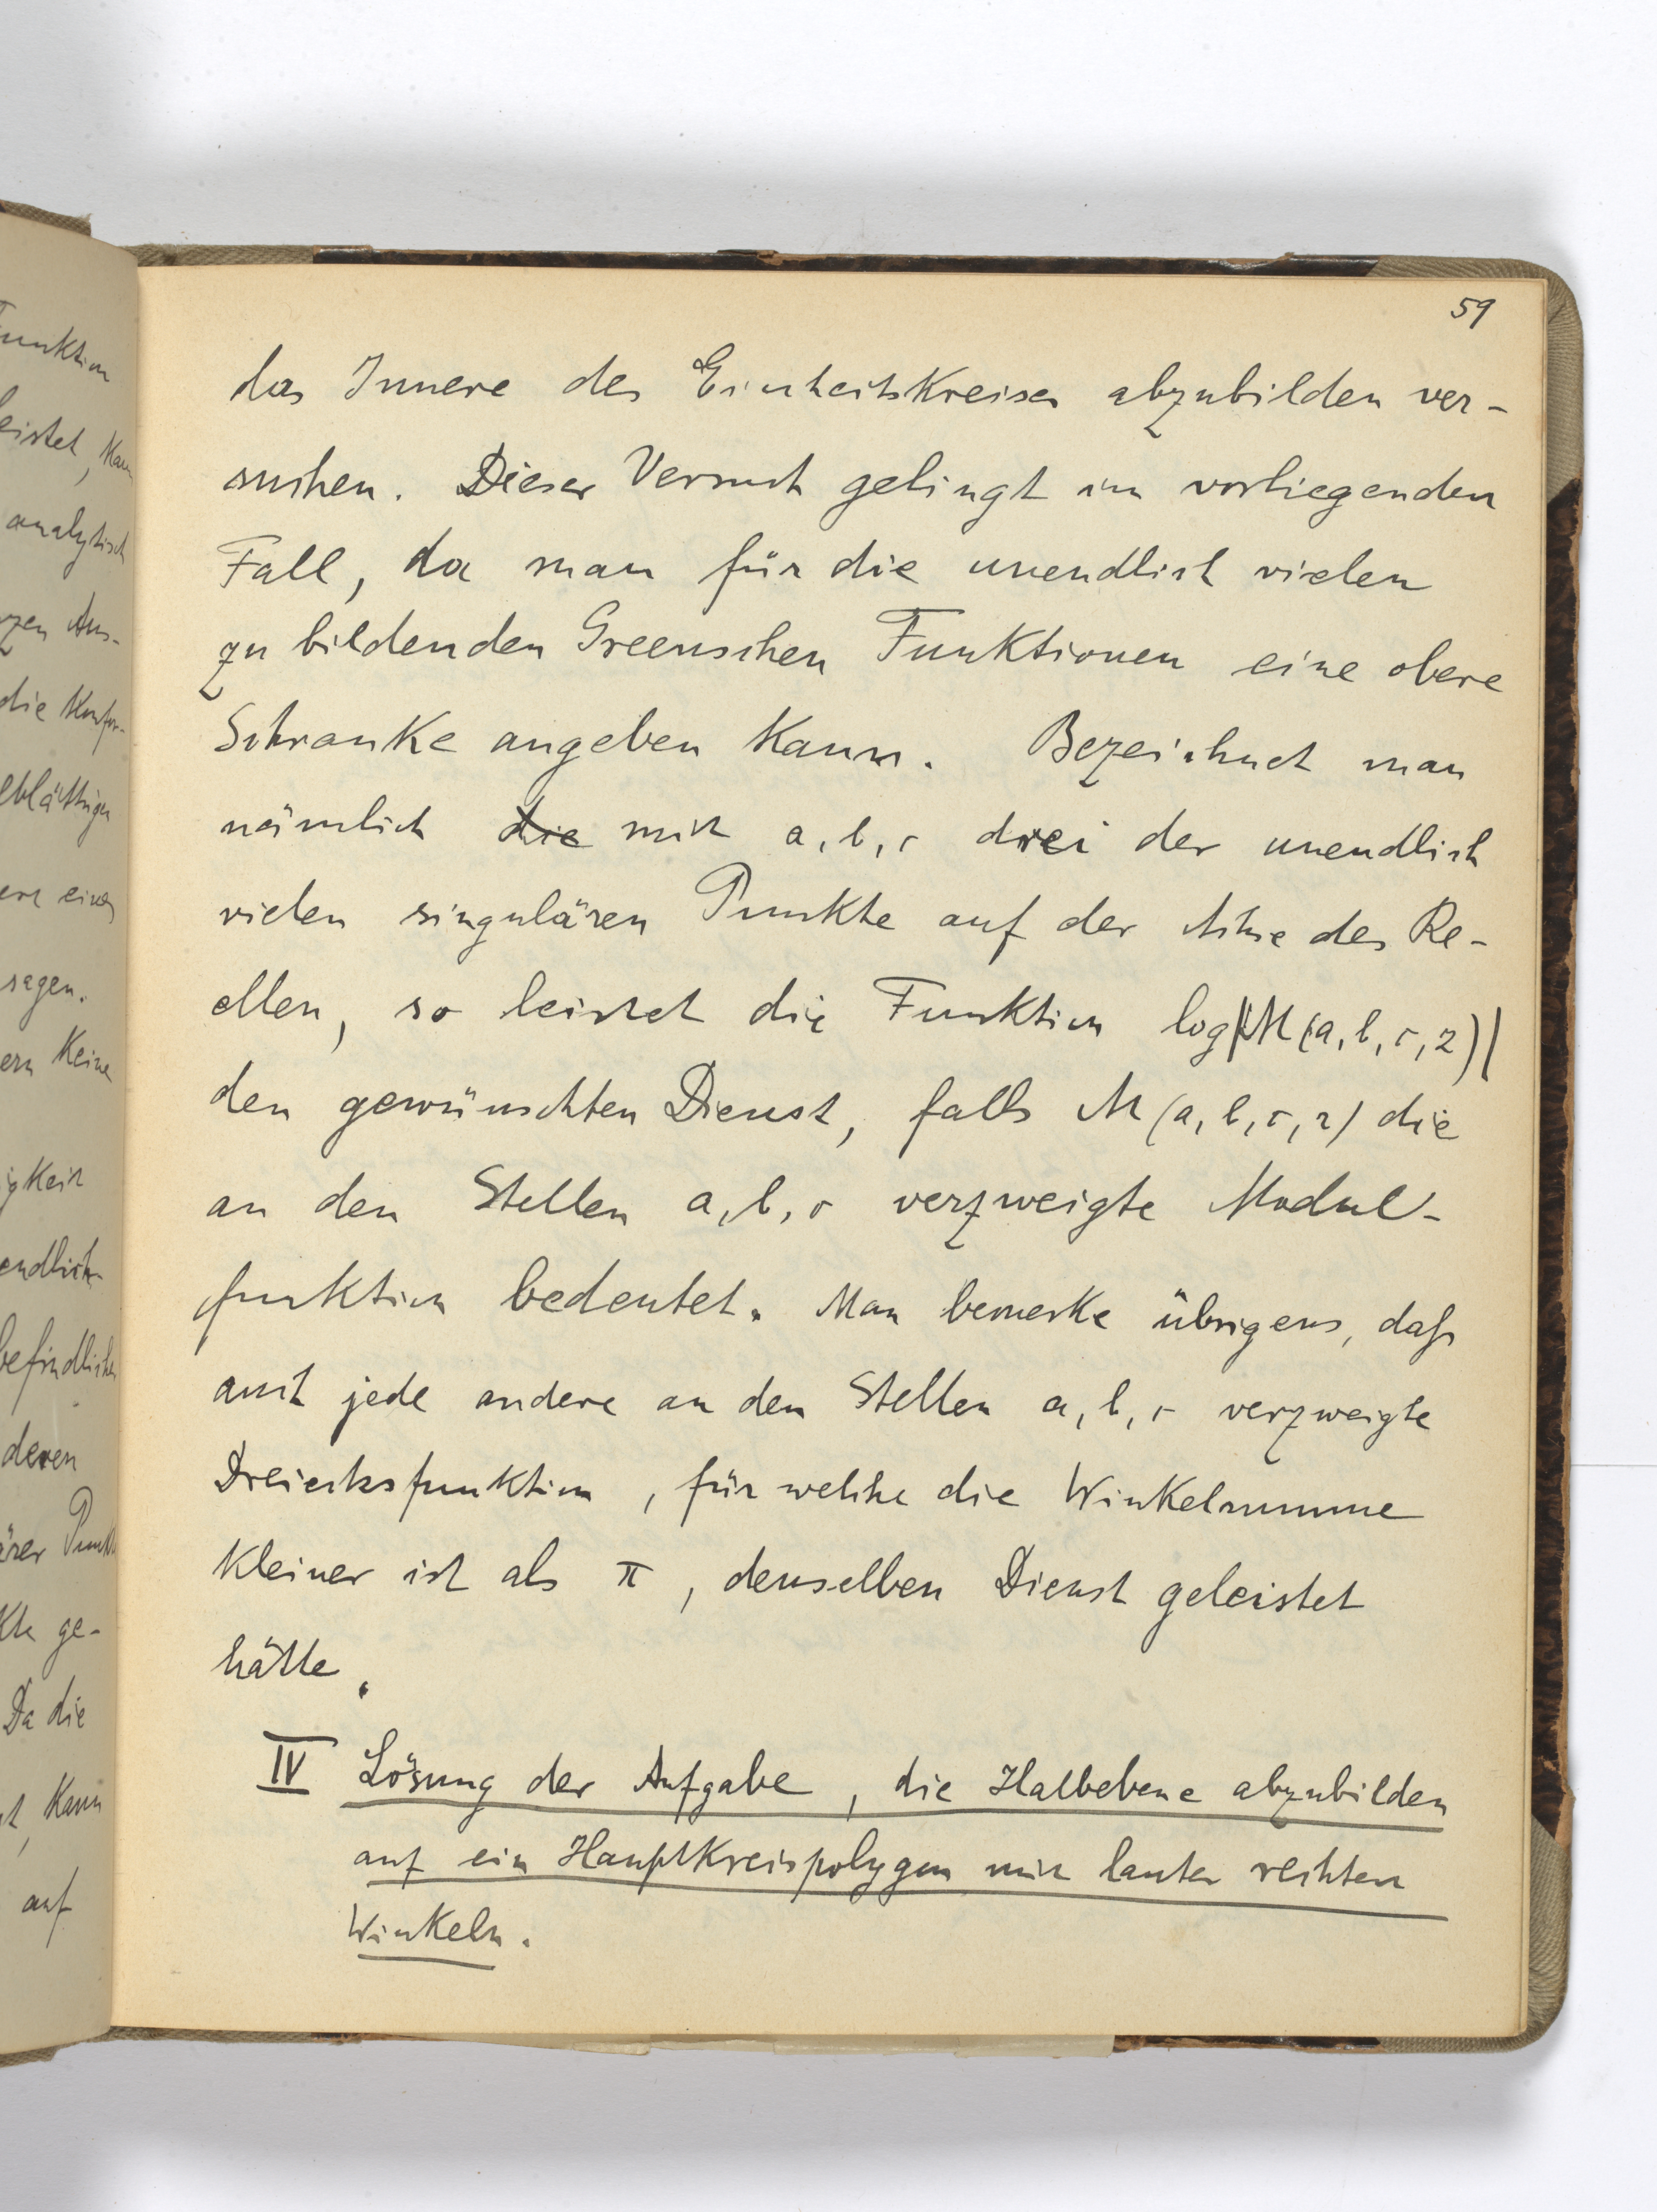 59
das Innere des Einheitskreises abzubilden ver-
suchen. Dieser Versuch gelingt im vorliegenden
Fall, da man für die unendlich vielen
zu bildenden Greenschen Funktionen eine obere
Schranke angeben kann. Bezeichnet man
nämlich die mit a, b, c drei der unendlich
vielen singulären Punkte auf der Achse des Re-
ellen, so leistet die Funktion log|M(a, b, c, z)|
den gewünschten Dienst, falls M(a, b, c, z) die
an den Stellen a, b, c verzweigte Modul-
funktion bedeutet. Man bemerke übrigens, daß
auch jede andere an den Stellen a, b, c verzweigte
Dreiecksfunktion, für welche die Winkelsumme
kleiner ist als π, denselben Dienst geleistet
hätte.
IV Lösung der Aufgabe, die Halbebene abzubilden
auf ein Hauptkreispolygon mit lauter rechten
Winkeln.
unktion
eistet, kann
analytisch
zen Aus-
die Konfor-
blättrigen
einer
sagen.
ern keine
igkeit
endlich
befindlichen
deren
ärer Punkte
kte ge-
Da die
t, kann
auf